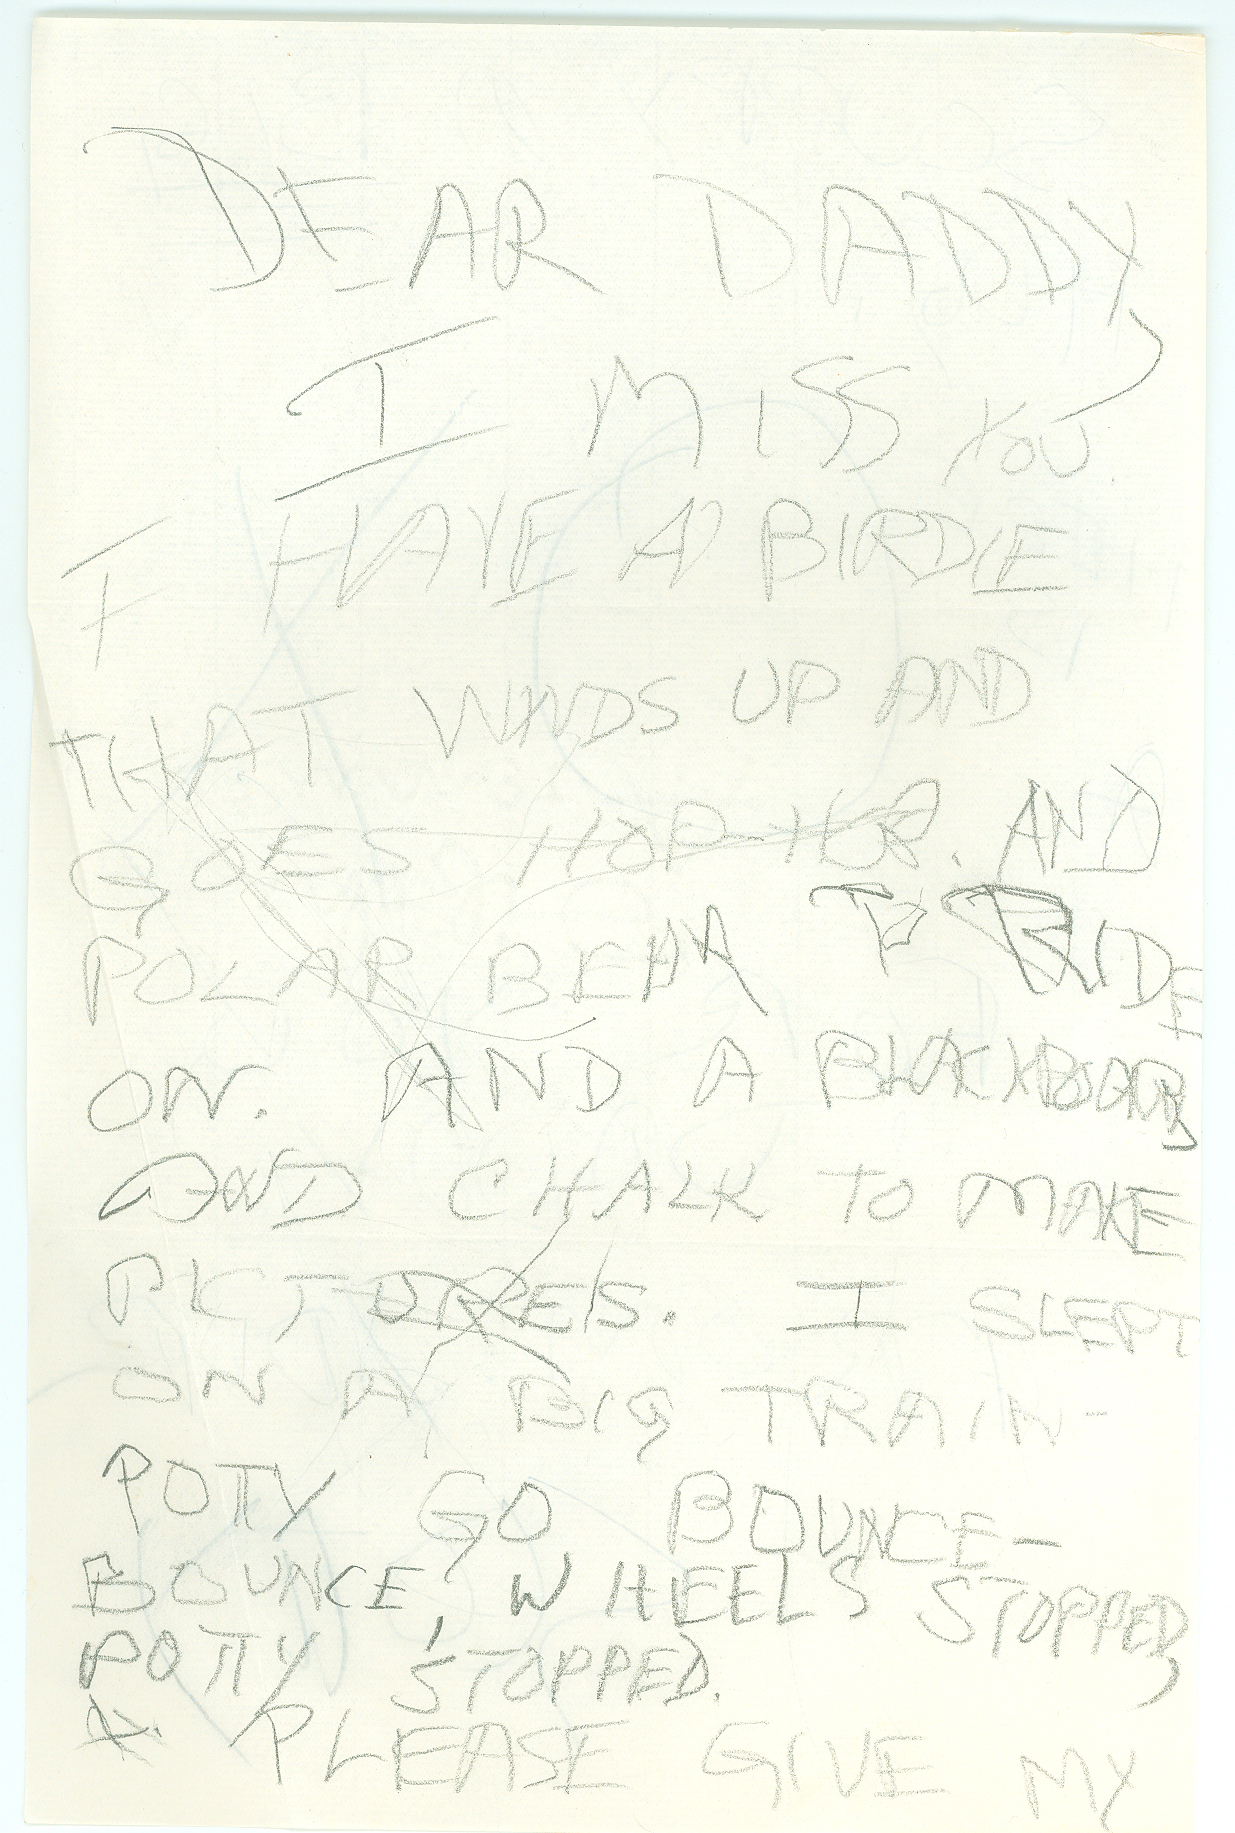 DEAR DADDY,
I MISS YOU.
I HAVE A BIRDIE
THAT WINDS UP AND
GOES HOP-HOP. AND
POLAR BEAR TO RIDE
ON. AND A BLACKBOARD
AND CHALK TO MAKE
PICTURES. I SLEPT
ON A BIG TRAIN-
POTTY GO BOUNCE-
BOUNCE, WHEELS STOPPED,
POTTY STOPPED.
PLEASE GIVE MY